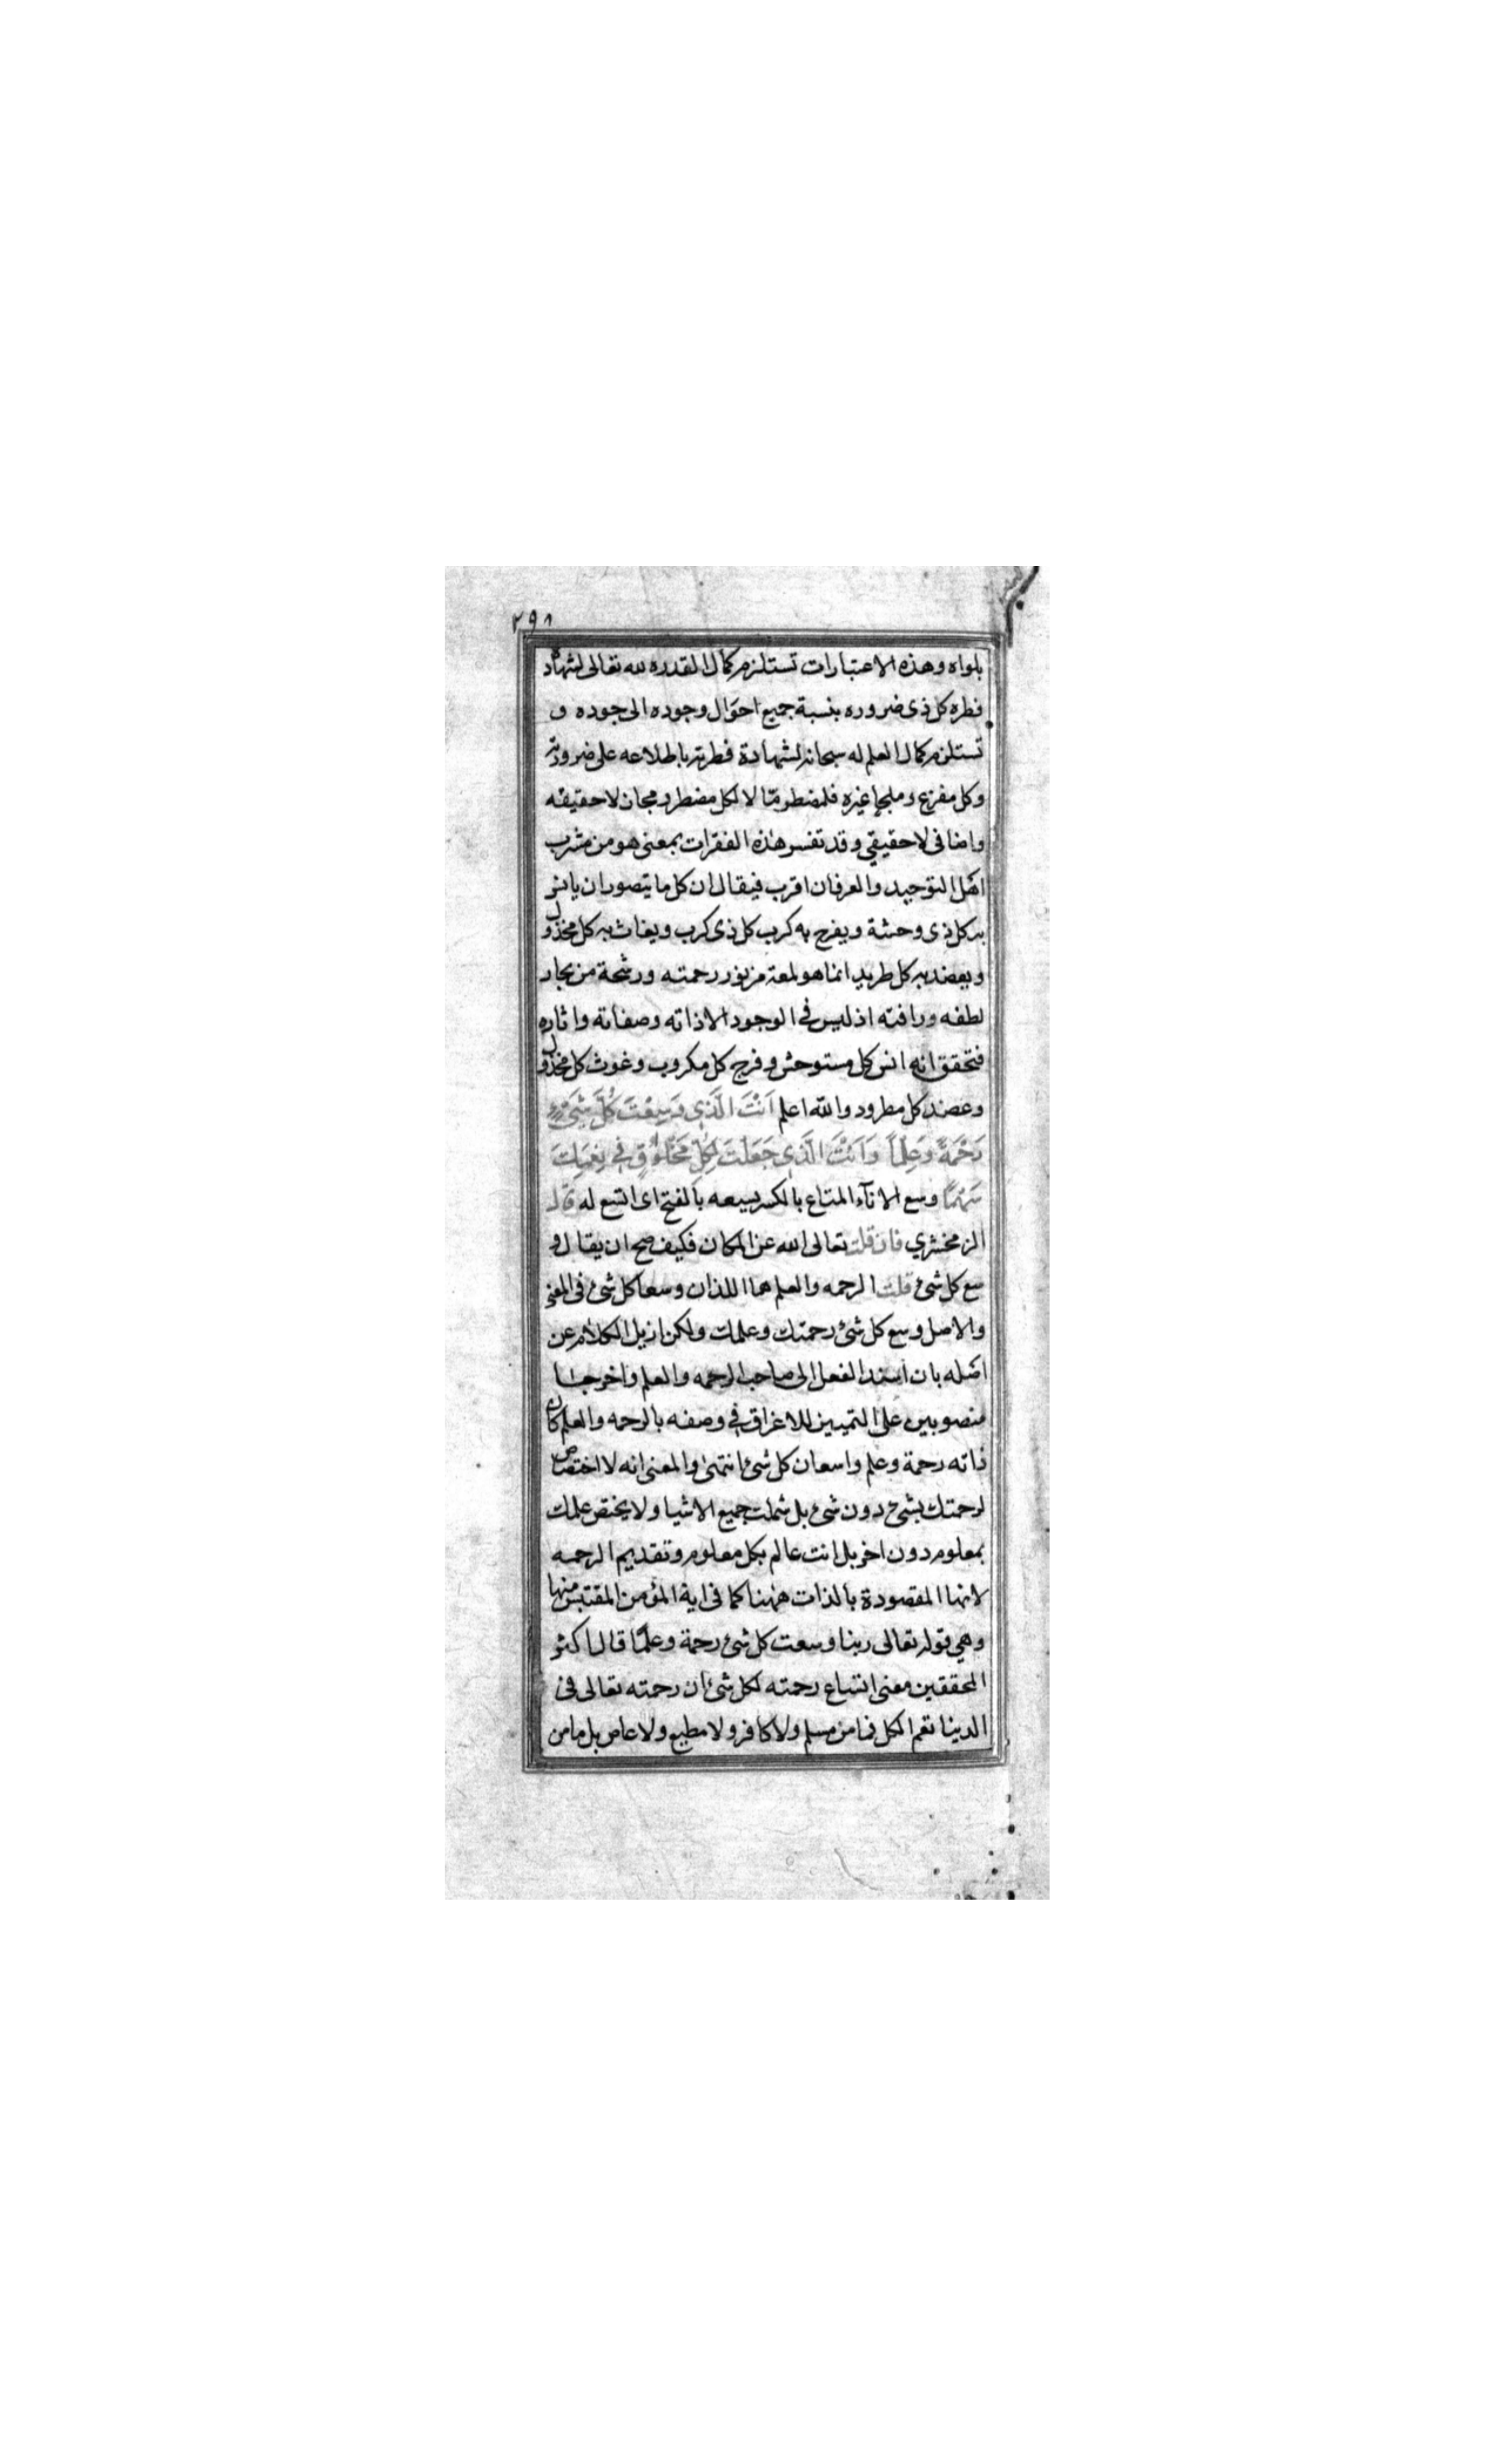 ٢٩٨
بلواه وهذه الاعتبارات تستلزم كمال القدره لله تعالى لشهادة
فطره كل ذى ضروره بنسبة جميع احوال وجوده الى جوده و
تستلزم كمال العلم له سبحانه لشهادة فطرته باطلاعه على ضرورته
وكل مفزع وملجإ غيره فلمضطر ما لا لكل مضطر ومجاز لا حقيقه
واضافى لا حقيقي وقد تفسر هذه الفقرات بمعنى هو من مشرب
اهل التوحيد والعرفان اقرب فيقال ان كل ما يتصور ان يانس
به كل ذى وحشة ويفرج به كرب كل ذى كرب ويغاث به كل مخذول
ويعضد به كل طريد انما هو لمعة من نور رحمته ورشحة من بحار
لطفه ورافته اذ ليس في الوجود الا ذاته وصفاته واثاره
فتحقق انه انس كل مستوحش وفرج كل مكروب وغوث كل مخذول
وعضد كل مطرود والله اعلم اَنْتَ الَّذِي وَسِعْتَ كُلَّ شَيْءٍ
رَحْمَةً وَعِلْمًا وَاَنْتَ الَّذِي جَعَلْتَ لِكُلِّ مَخْلُوقٍ فِي نِعَمِكَ
سَهْمًا وسع الاناء المتاع بالكسر يسعه بالفتح اى اتسع له قال
الزمخشري فان قلت تعالى الله عن المكان فكيف صح ان يقال و
سع كل شئ قلت الرحمه والعلم هما اللذان وسعا كل شئ فى المعنى
والاصل وسع كل شئ رحمتك وعلمك ولكن ازيل الكلام عن
اصله بان اسند الفعل الى صاحب الرحمه والعلم واخرجا
منصوبين على التمييز للاغراق في وصفه بالرحمه والعلم كان
ذاته رحمة وعلم واسعان كل شئ انتهى والمعنى انه لا اختصاص
لرحمتك بشئ دون شئ بل شملت جميع الاشيا ولا يختص علمك
بمعلوم دون اخر بل انت عالم بكل معلوم وتقديم الرحمه
لانها المقصودة بالذات ههنا كما فى اية المؤمن المقتبس منها
وهي قوله تعالى ربنا وسعت كل شئ رحمة وعلمًا قال اكثر
المحققين معنى اتساع رحمته لكل شئ ان رحمته تعالى فى
الدينا تعم الكل فما من مسلم ولا كافر ولا مطيع ولا عاص بل ما من